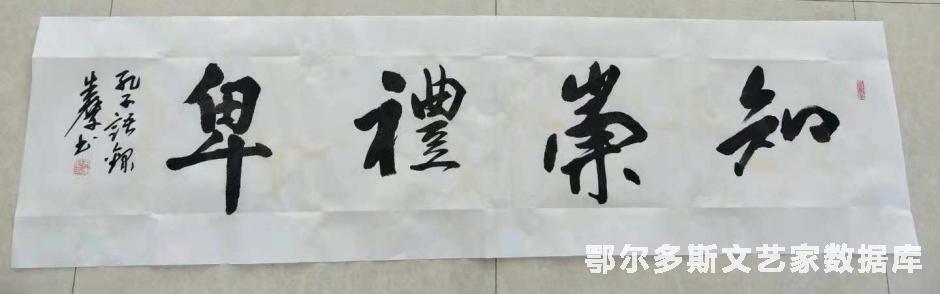 知崇禮卑
孔子語錄
鄂尔多斯文艺家数据库